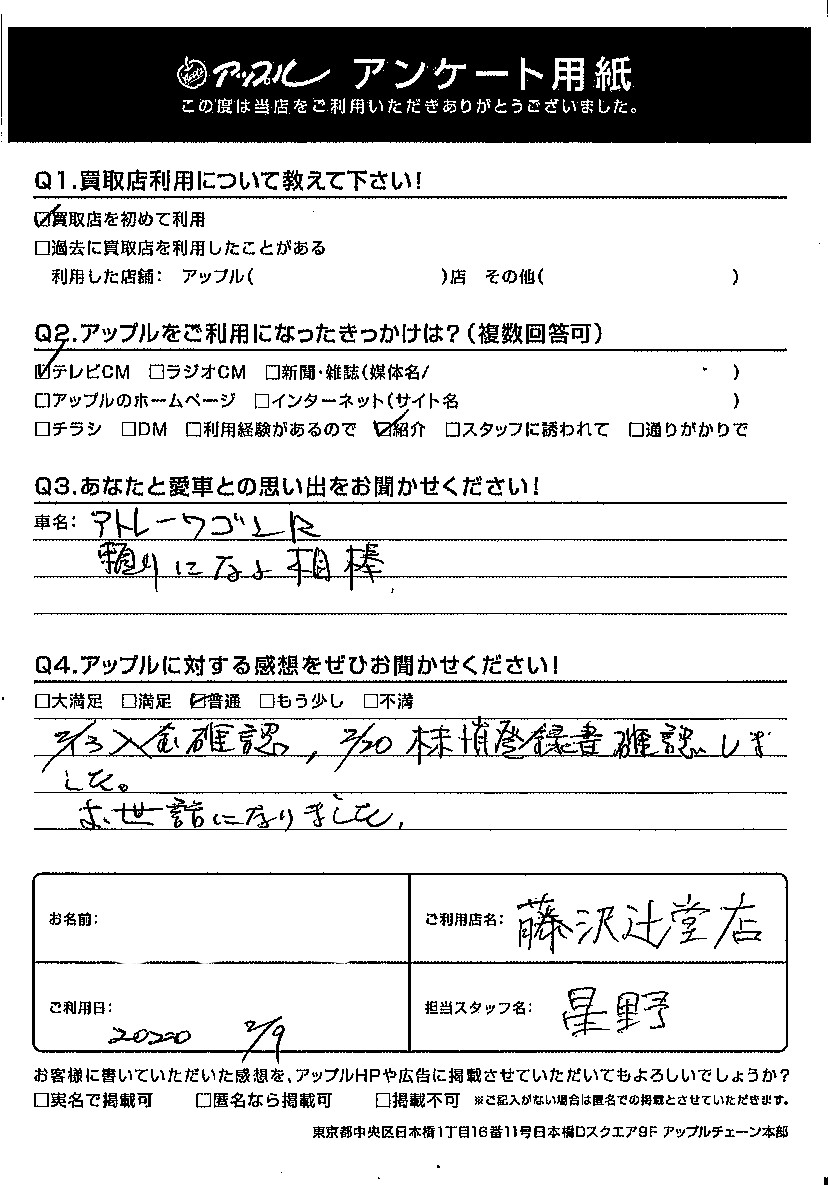 アップル アンケート用紙
この度は当店をご利用いただきありがとうございました。
Q1.買取店利用について教えて下さい!
☑買取店を初めて利用
□過去に買取店を利用したことがある
利用した店舗: アップル( )店 その他( )
Q2.アップルをご利用になったきっかけは?(複数回答可)
☑テレビCM □ラジオCM □新聞・雑誌(媒体名/ )
□アップルのホームページ □インターネット(サイト名 )
□チラシ □DM □利用経験があるので ☑紹介 □スタッフに誘われて □通りがかりで
Q3.あなたと愛車との思い出をお聞かせください!
車名: アトレーワゴンR
頼りになる相棒
Q4.アップルに対する感想をぜひお聞かせください!
□大満足 □満足 ☑普通 □もう少し □不満
2/13入金確認, 2/20 抹消登録書確認しま
した。
お世話になりました.
お名前:
ご利用店名: 藤沢辻堂店
ご利用日: 2020 2/9
担当スタッフ名: 星野
お客様に書いていただいた感想を、アップルHPや広告に掲載させていただいてもよろしいでしょうか?
□実名で掲載可 □匿名なら掲載可 □掲載不可 ※ご記入がない場合は匿名での掲載とさせていただきます。
東京都中央区日本橋1丁目16番11号日本橋Dスクエア9F アップルチェーン本部